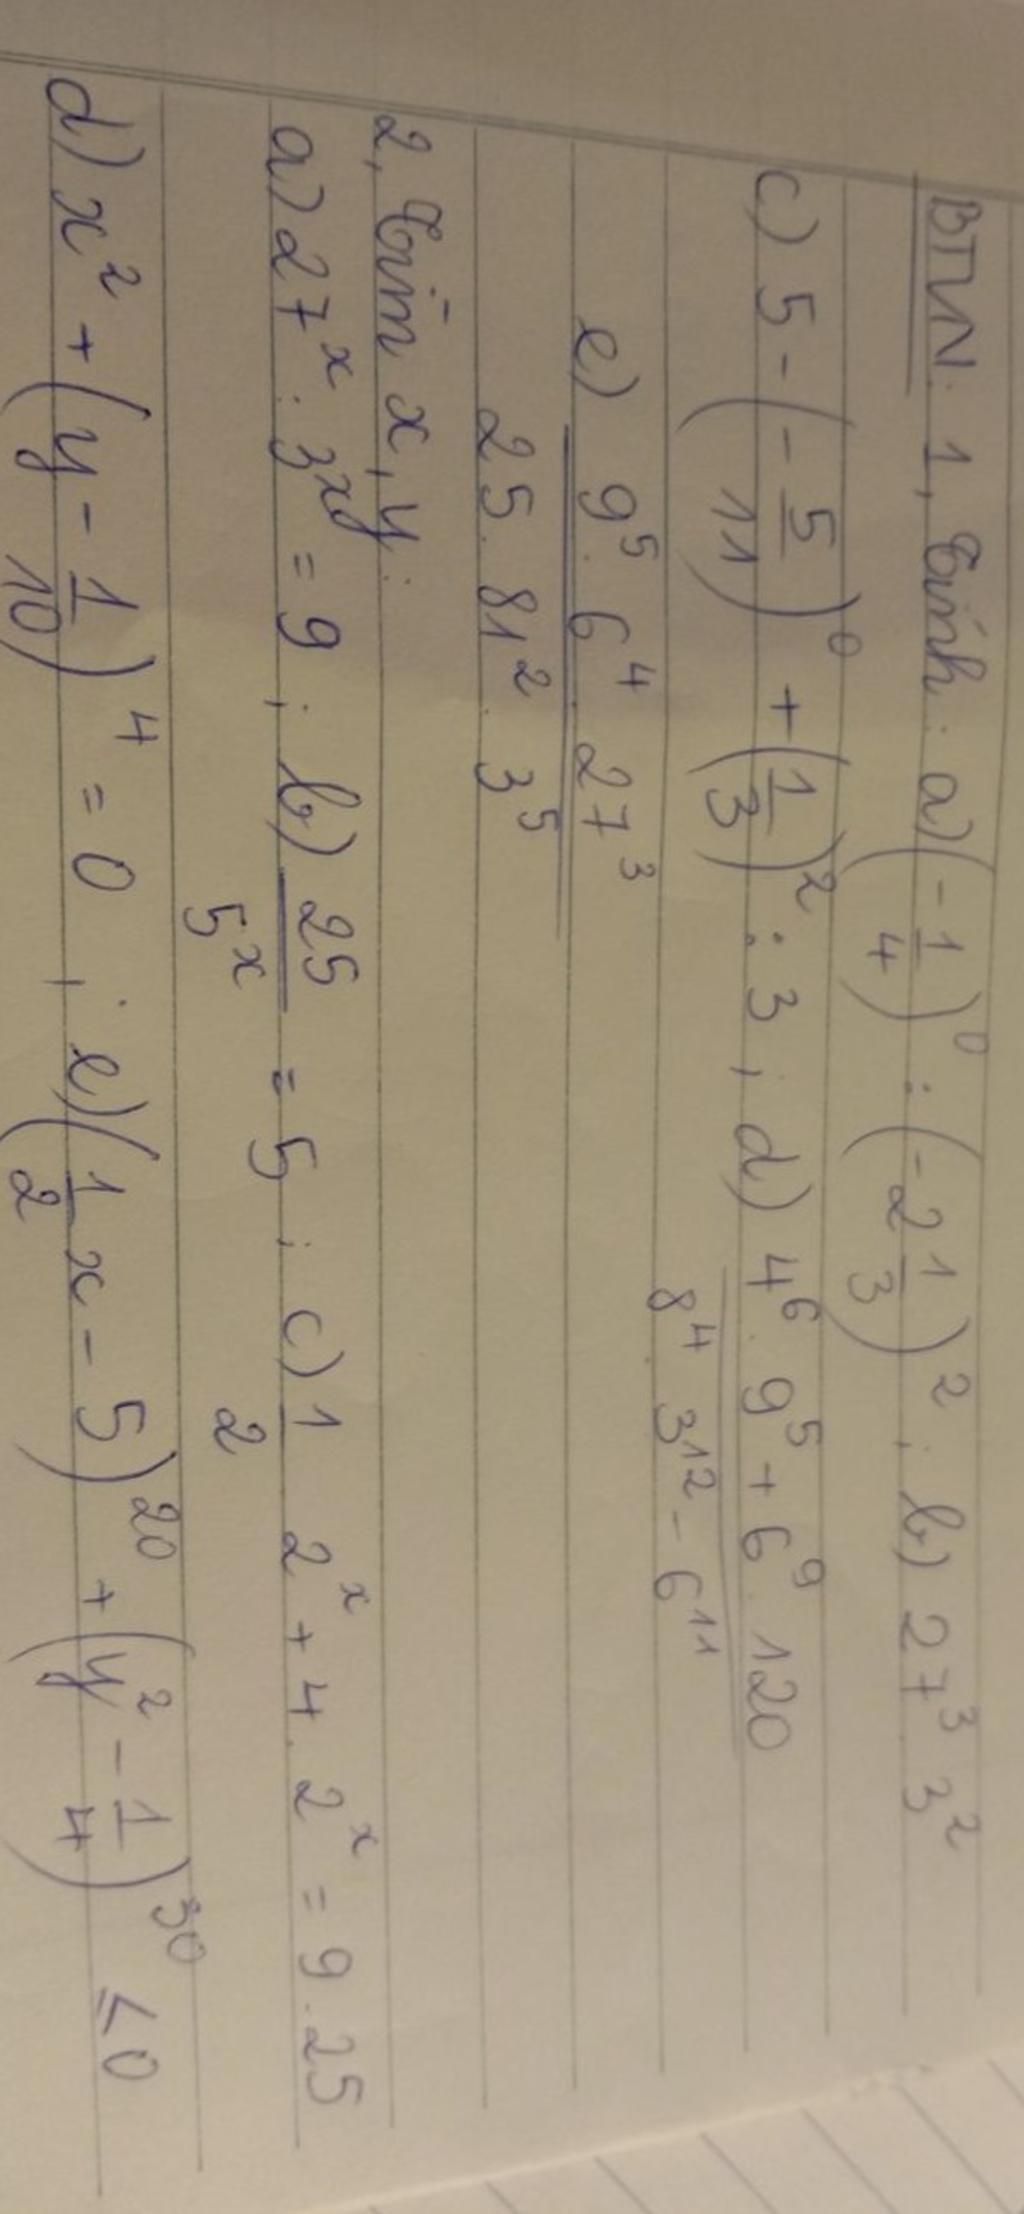 BTVN: 1, Tính: a) (-1/4)^0 : (-2 1/3)^2 ; b) 27^3 : 3^2
c) 5 - (-5/11)^0 + (1/3)^2 : 3 ; d) (4^6 . 9^5 + 6^9 . 120)/(8^4 . 3^12 - 6^11)
e) (9^5 . 6^4 . 27^3)/(25 . 81^2 . 3^5)
2, Tìm x, y:
a) 27^x : 3^x = 9 ; b) 25/5^x = 5 ; c) 1/2 2^x + 4 . 2^x = 9 . 25
d) x^2 + (y - 1/10)^4 = 0 ; e) (1/2 x - 5)^20 + (y^2 - 1/4)^30 ≤ 0